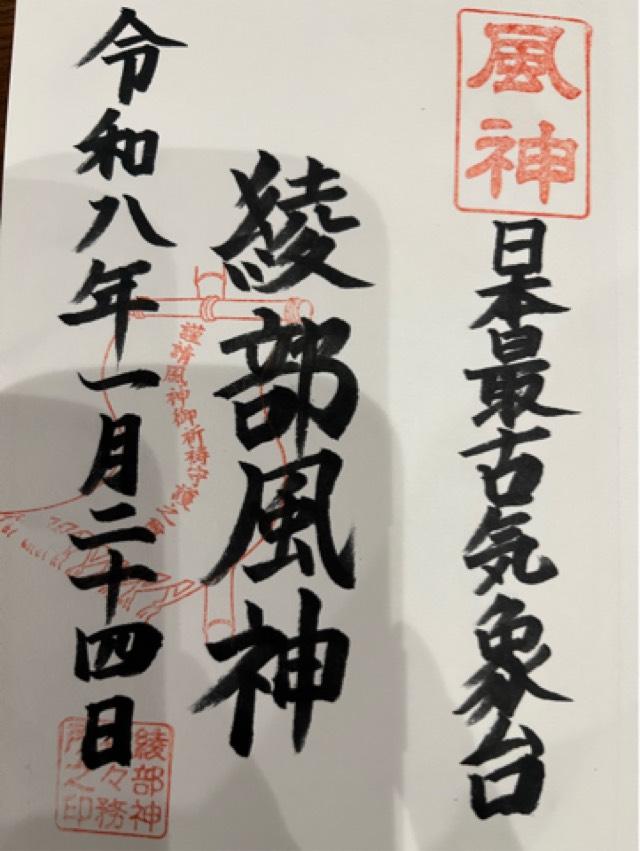 風神
日本最古気象台
綾部風神
謹請風神御祈祷守護之
令和八年一月二十四日
綾部神
々務
所之印